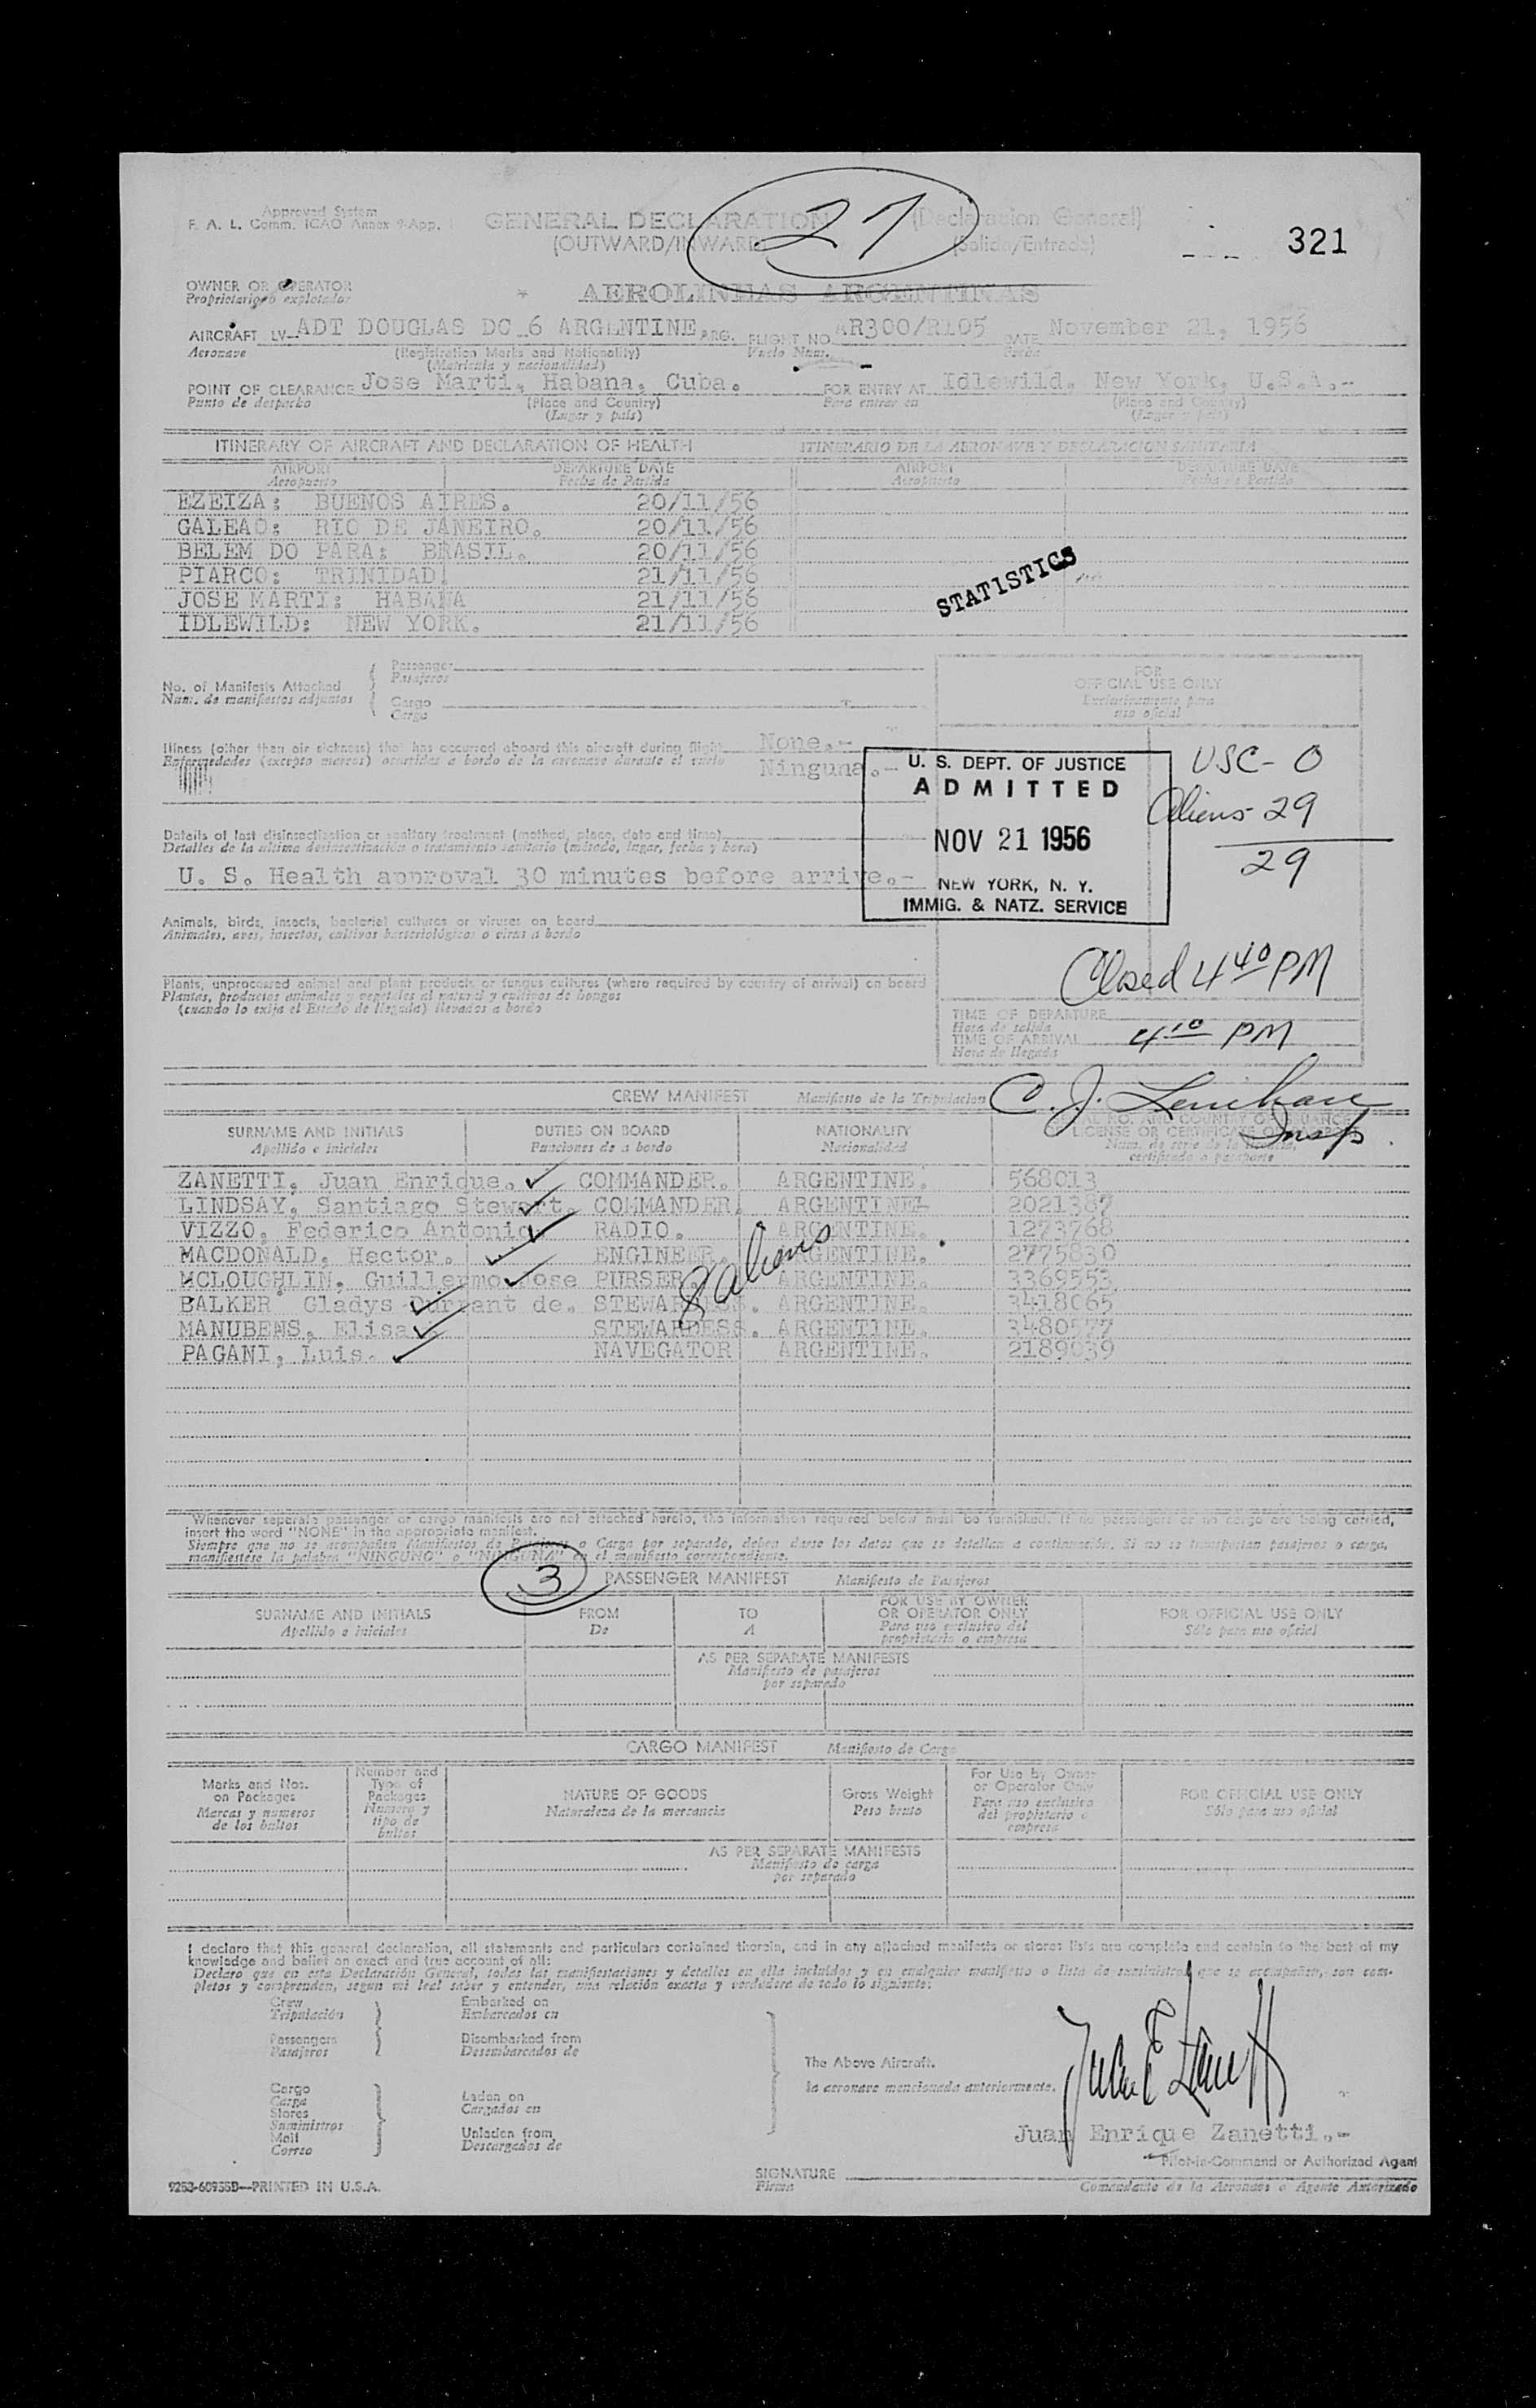 Approved System
F. A. L. Comm. ICAO Annex 9-App. 1
GENERAL DECLARATION (Declaracion General)
(OUTWARD/INWARD) (Salida/Entrada)
27
321
OWNER OR OPERATOR
Proprietario o explotador
AEROLINEAS ARGENTINAS
AIRCRAFT LV-ADT DOUGLAS DC 6 ARGENTINE ARG. FLIGHT NO. AR300/R105 DATE November 21, 1956
Aeronave (Registration Marks and Nationality) Vuelo Num. Fecha
(Matricula y nacionalidad)
POINT OF CLEARANCE Jose Marti, Habana, Cuba. FOR ENTRY AT Idlewild, New York, U.S.A.-
Punto de despacho (Place and Country) Para entrar en (Place and Country)
(Lugar y pais) (Lugar y pais)
ITINERARY OF AIRCRAFT AND DECLARATION OF HEALTH ITINERARIO DE LA AERONAVE Y DECLARACION SANITARIA
AIRPORT DEPARTURE DATE AIRPORT DEPARTURE DATE
Aeropuerto Fecha de Partida Aeropuerto Fecha de Partida
EZEIZA: BUENOS AIRES. 20/11/56
GALEAO: RIO DE JANEIRO. 20/11/56
BELEM DO PARA: BRASIL. 20/11/56
PIARCO: TRINIDAD. 21/11/56
JOSE MARTI: HABANA 21/11/56
IDLEWILD: NEW YORK. 21/11/56
STATISTICS
No. of Manifests Attached
Num. de manifiestos adjuntos
Passenger
Pasajeros
Cargo
Carga
FOR
OFFICIAL USE ONLY
Exclusivamente para
uso oficial
Illness (other than air sickness) that has occurred aboard this aircraft during flight None.-
Enfermedades (excepto mareos) ocurridas a bordo de la aeronave durante el vuelo Ninguna.-
U. S. DEPT. OF JUSTICE
ADMITTED
NOV 21 1956
NEW YORK, N. Y.
IMMIG. & NATZ. SERVICE
USC- 0
Aliens- 29
29
Details of last disinsectization or sanitary treatment (method, place, date and time)
Detalles de la ultima desinsectización o tratamiento sanitario (método, lugar, fecha y hora)
U. S. Health approval 30 minutes before arrive.-
Animals, birds, insects, bacterial cultures or viruses on board
Animales, aves, insectos, cultivos bacteriológicos o virus a bordo
Closed 4 40 PM
Plants, unprocessed animal and plant products or fungus cultures (where required by country of arrival) on board
Plantas, productos animales y vegetales al natural y cultivos de hongos
(cuando lo exija el Estado de llegada) llevados a bordo
TIME OF DEPARTURE
Hora de salida
TIME OF ARRIVAL 4 10 PM
Hora de llegada
C. J. Lenihan
Insp.
CREW MANIFEST Manifiesto de la Tripulacion
SURNAME AND INITIALS DUTIES ON BOARD NATIONALITY
LICENSE OR CERTIFICATE
Apellido e iniciales Funciones de a bordo Nacionalidad
certificado o pasaporte
ZANETTI, Juan Enrique. COMMANDER. ARGENTINE. 568013
LINDSAY, Santiago Stewart. COMMANDER. ARGENTINE. 2021387
VIZZO, Federico Antonio. RADIO. ARGENTINE. 1273768
MACDONALD, Hector. ENGINEER. ARGENTINE. 2775830
MCLOUGHLIN, Guillermo Jose PURSER. ARGENTINE. 3369553
BALKER Gladys Durrant de. STEWARDESS. ARGENTINE. 3418065
MANUBENS, Elisa STEWARDESS. ARGENTINE. 3480577
PAGANI, Luis. NAVEGATOR ARGENTINE. 2189039
8 aliens
Whenever separate passenger or cargo manifests are not attached hereto, the information required below must be furnished. If no passengers or no cargo are being carried,
insert the word "NONE" in the appropriate manifest.
Siempre que no se acompañen Manifiestos de Pasajeros o Carga por separado, deben darse los datos que se detallan a continuación. Si no se transportan pasajeros o carga,
manifiestese la palabra "NINGUNO" o "NINGUNA" en el manifiesto correspondiente.
3
PASSENGER MANIFEST Manifiesto de Pasajeros
SURNAME AND INITIALS FROM TO FOR USE BY OWNER OR OPERATOR ONLY FOR OFFICIAL USE ONLY
Apellido e iniciales De A Para uso exclusivo del propietario o empresa Sólo para uso oficial
AS PER SEPARATE MANIFESTS
Manifiesto de pasajeros
por separado
CARGO MANIFEST Manifiesto de Carga
Marks and Nos. on Packages Number and Type of Packages NATURE OF GOODS Gross Weight For Use by Owner or Operator Only FOR OFFICIAL USE ONLY
Marcas y numeros de los bultos Numero y tipo de bultos Naturaleza de la mercancia Peso bruto Para uso exclusivo del propietario o empresa Sólo para uso oficial
AS PER SEPARATE MANIFESTS
Manifiesto de carga
por separado
I declare that this general declaration, all statements and particulars contained therein, and in any attached manifests or stores lists are complete and contain to the best of my
knowledge and belief an exact and true account of all:
Declaro que en esta Declaración General, todas las manifestaciones y detalles en ella incluidos y en cualquier manifiesto o lista de suministros que se acompañen, son com-
pletos y comprenden, segun mi leal saber y entender, una relación exacta y verdadera de todo lo siguiente:
Crew Embarked on
Tripulación Embarcados en
Passengers Disembarked from
Pasajeros Desembarcados de
The Above Aircraft.
la aeronave mencionada anteriormente.
Cargo Laden on
Carga Cargados en
Stores
Suministros
Mail Unladen from
Correo Descargados de
Juan E Zanetti
Juan Enrique Zanetti.-
Pilot-in-Command or Authorized Agent
SIGNATURE
Firma Comandante de la Aeronave o Agente Autorizado
9253-60955D—PRINTED IN U.S.A.